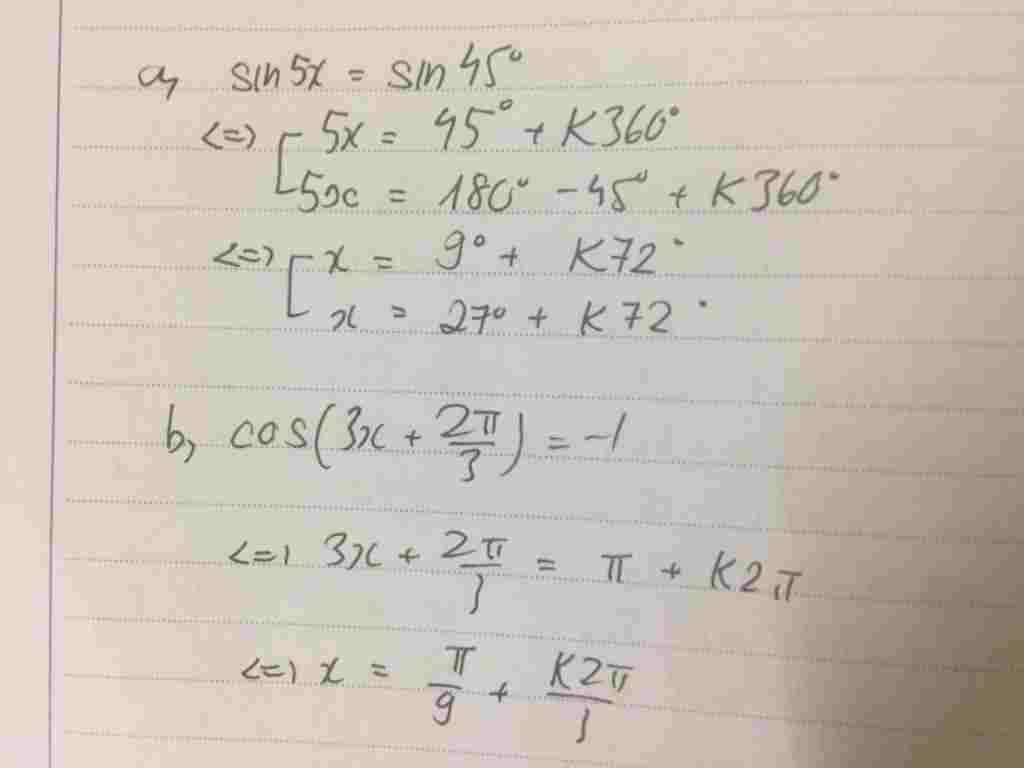 a, sin5x = sin45°
<=> [ 5x = 45° + K360°
5x = 180° - 45° + K360°
<=> [ x = 9° + K72°
x = 27° + K72°
b, cos(3x + 2π/3) = -1
<=> 3x + 2π/3 = π + K2π
<=> x = π/9 + K2π/3